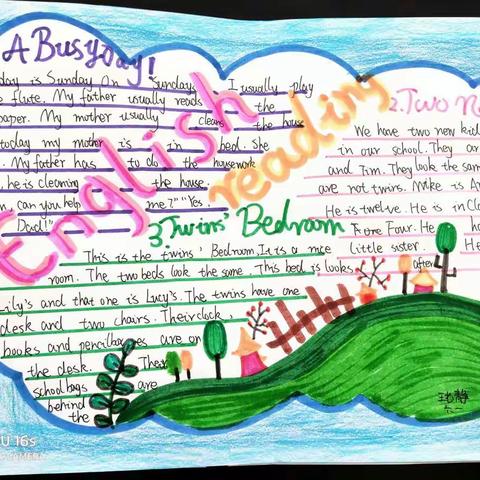 A Busy Day!
day is Sunday On sunday I usually play
flute. My father usually reads the
paper. My mother usually cleans the house
today my mother is in bed. She
My father has to do the housework
he is cleaning the house.
can you help me?" "Yes
Dad!"
English reading
2. Two N
We have two new kid
in our school. They ar
and Jim. They look the same
are not twins. Mike is A
He is twelve. He is in Cla
Four. He ha
little sister. He
looks after
3. Twins' Bedroom
This is the twins' Bedroom. It is a nice
room. The two beds look the same. This bed is
Lily's and that one is Lucy's. The twins have one
desk and two chairs. Their clock,
books and pencilboxes are on
the desk. Their
schoolbags are
behind
the
U 16s
CAMERA